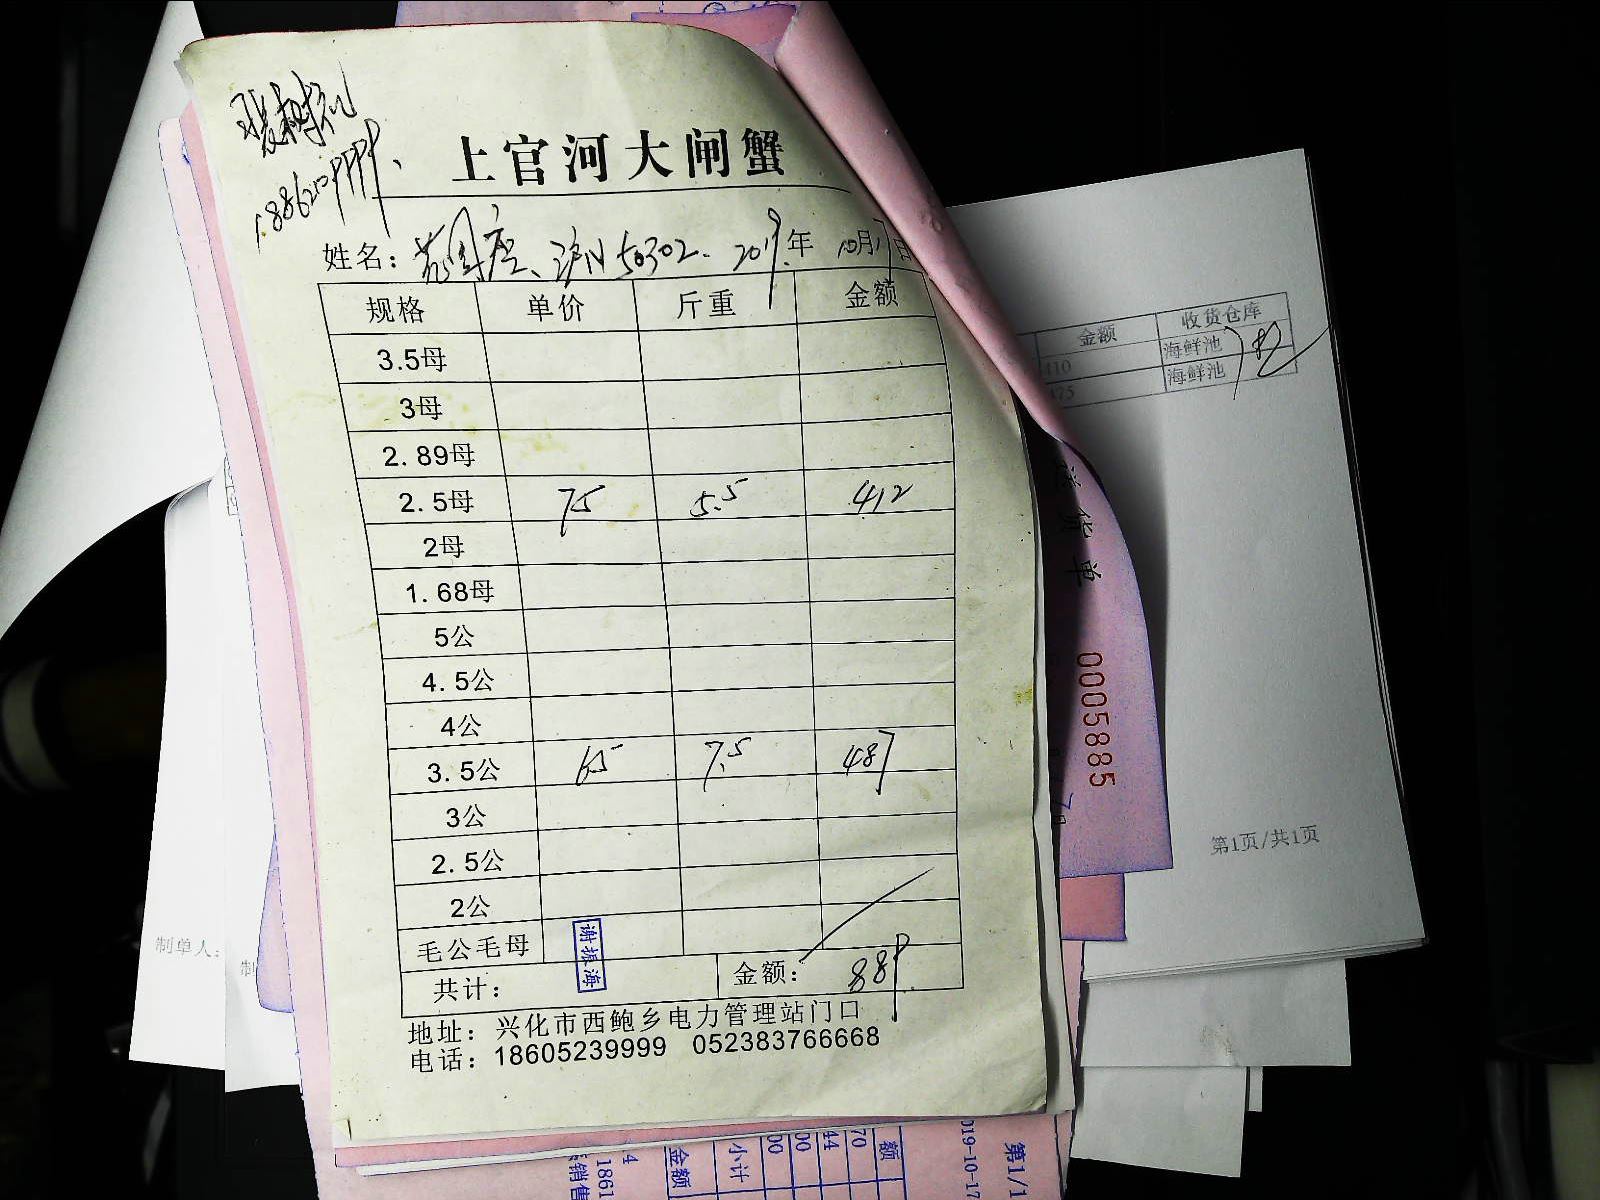 上官河大闸蟹
姓名： 50302. 2019年 10月17日
规格 单价 斤重 金额
3.5母
3母
2.89母
2.5母 75 5.5 412
2母
1.68母
5公
4.5公
4公
3.5公 65 7.5 487
3公
2.5公
2公
毛公毛母
谢振海
共计： 金额： 889.
地址：兴化市西鲍乡电力管理站门口
电话：18605239999 052383766668
金额 收货仓库
410 海鲜池
475 海鲜池
第1页/共1页
送货单
0005885
制单人：
制
额
70
44
00
00
小计
金额
4
1861
销售
019-10-17
第1/1